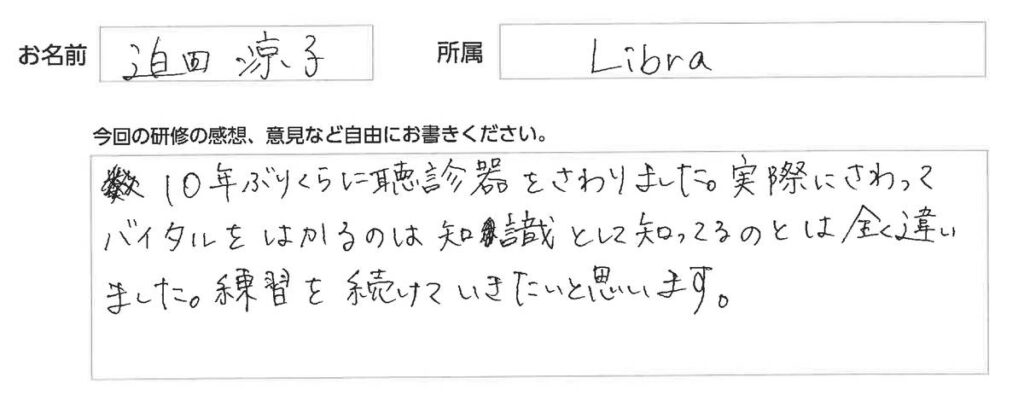 お名前 迫田 涼子 所属 Libra
今回の研修の感想、意見など自由にお書きください。
数10年ぶりくらいに聴診器をさわりました。実際にさわって
バイタルをはかるのは知識として知ってるのとは全く違い
ました。練習を続けていきたいと思います。